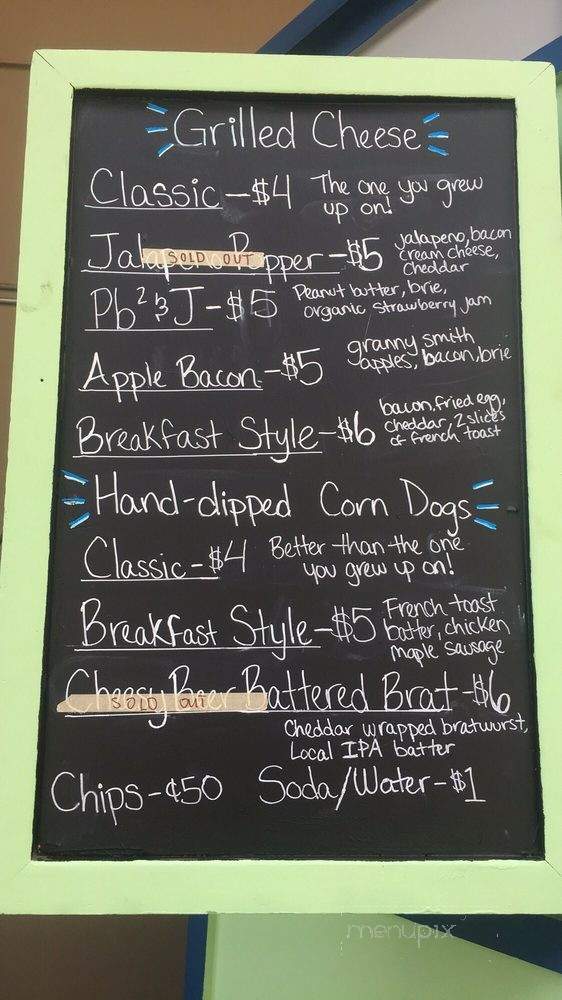 Grilled Cheese
Classic - $4 The one you grew
up on!
Jalapeno Popper - $5 jalapeno, bacon
SOLD OUT
cream cheese,
cheddar
Pb² & J - $5 Peanut butter, brie,
organic strawberry jam
Apple Bacon - $5 granny smith
apples, bacon, brie
Breakfast Style - $6 bacon, fried egg,
cheddar, 2 slices
of french toast
Hand-dipped Corn Dogs
Classic - $4 Better than the one
you grew up on!
Breakfast Style - $5 French toast
batter, chicken
maple sausage
Cheesy Beer Battered Brat - $6
SOLD OUT
Cheddar wrapped bratwurst,
Local IPA batter
Chips - ¢50 Soda/Water - $1
menupix